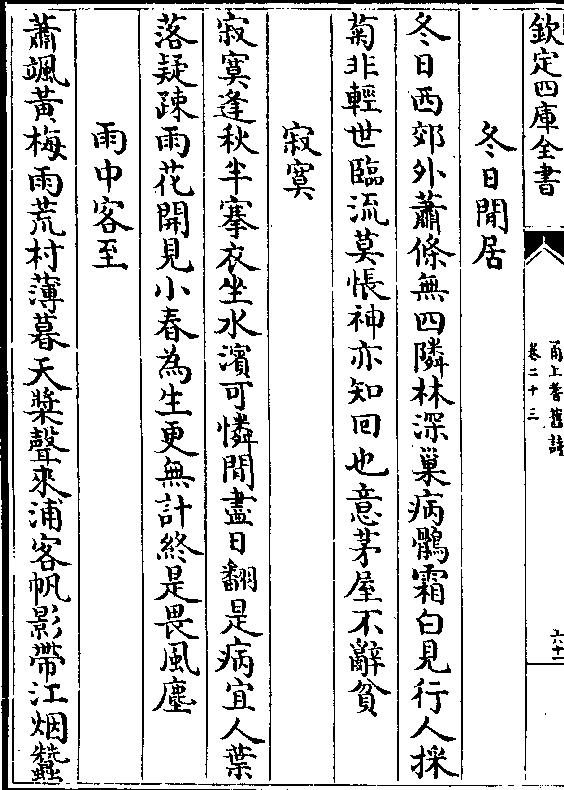 欽定四庫全書
甬上耆舊詩
卷二十三
六十一
冬日閒居
冬日西郊外蕭條無四隣林深巢病鶻霜白見行人採
菊非輕世臨流莫悵神亦知回也意茅屋不辭貧
寂寞
寂寞逢秋半搴衣坐水濱可憐閒盡日翻是病宜人葉
落疑疎雨花開見小春為生更無計終是畏風塵
雨中客至
蕭颯黃梅雨荒村薄暮天槳聲來浦客帆影帶江烟蠶